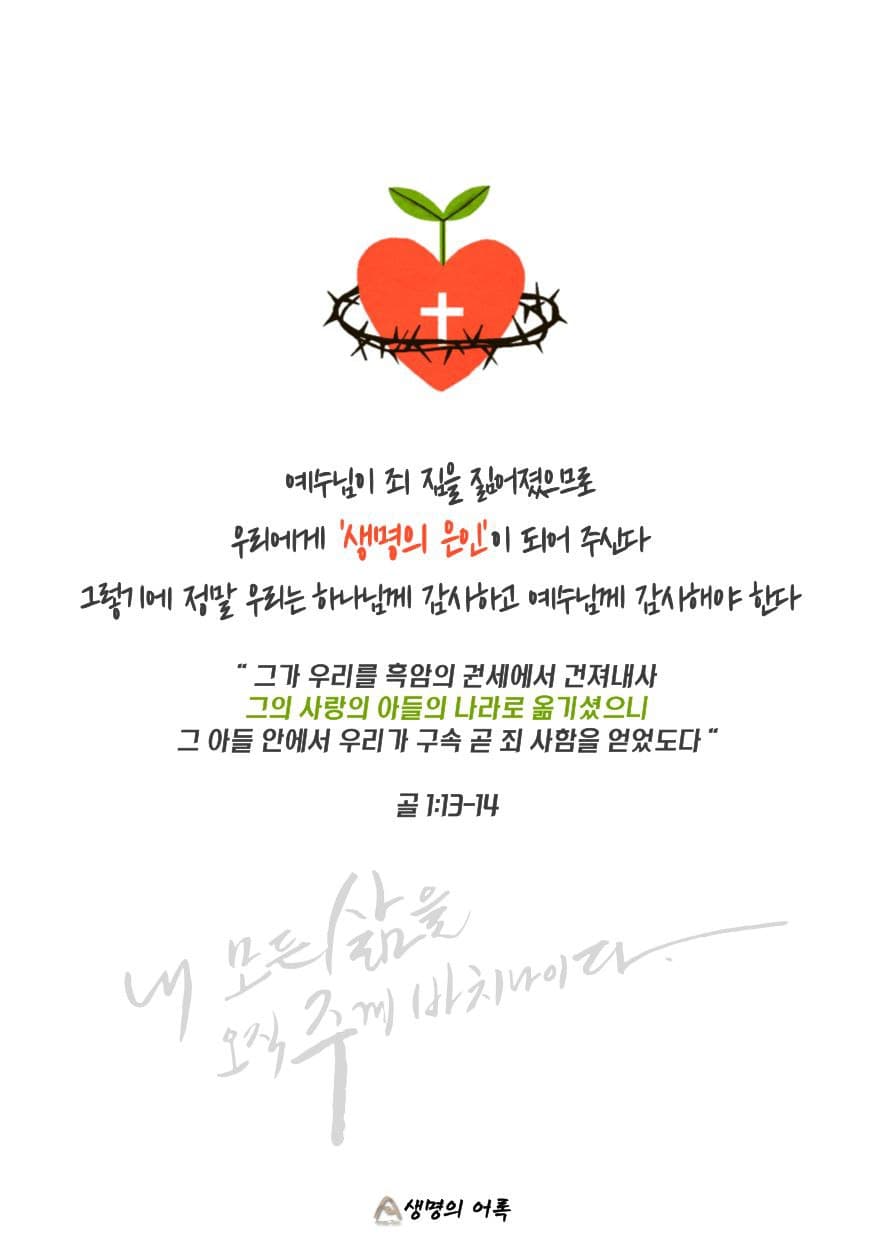 예수님이 죄 짐을 짊어졌으므로
우리에게 '생명의 은인'이 되어 주신다
그렇기에 정말 우리는 하나님께 감사하고 예수님께 감사해야 한다
“ 그가 우리를 흑암의 권세에서 건져내사
그의 사랑의 아들의 나라로 옮기셨으니
그 아들 안에서 우리가 구속 곧 죄 사함을 얻었도다 “
골 1:13-14
내 모든 삶을
오직 주께 바치나이다.
생명의 어록